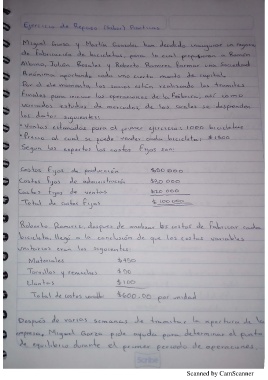 Ejercicios de Repaso
Miguel Garza y Martín Granados han decidido inaugurar un negocio
de fabricación de bicicletas, para lo cual propusieron a Ramón
Alberto, Julián Rosales y Roberto Romero formar una Sociedad
Anónima aportando cada uno cierto monto de capital.
Por el momento los socios están realizando los trámites
finales para iniciar las operaciones de la fábrica, así como
variados estudios de mercados de los cuales se desprenden
los datos siguientes:
• Ventas estimadas para el primer ejercicio: 1000 bicicletas
• Precio al cual se puede vender cada bicicleta: $1500
Según los expertos los costos fijos son:
Costos fijos de producción $60 000
Costos fijos de administración $20 000
Costos fijos de ventas $20 000
Total de costos fijos $100 000
Roberto Romero, después de analizar los costos de fabricar cada
bicicleta llegó a la conclusión de que los costos variables
unitarios eran los siguientes
Materiales $450
Tornillos y remaches $50
Llantas $100
Total de costos variable $600.00 por unidad
Después de varias semanas de trámites, la apertura de la
empresa, Miguel Garza pide ayuda para determinar el punto
de equilibrio durante el primer periodo de operaciones.
Scribe
Scanned by CamScanner